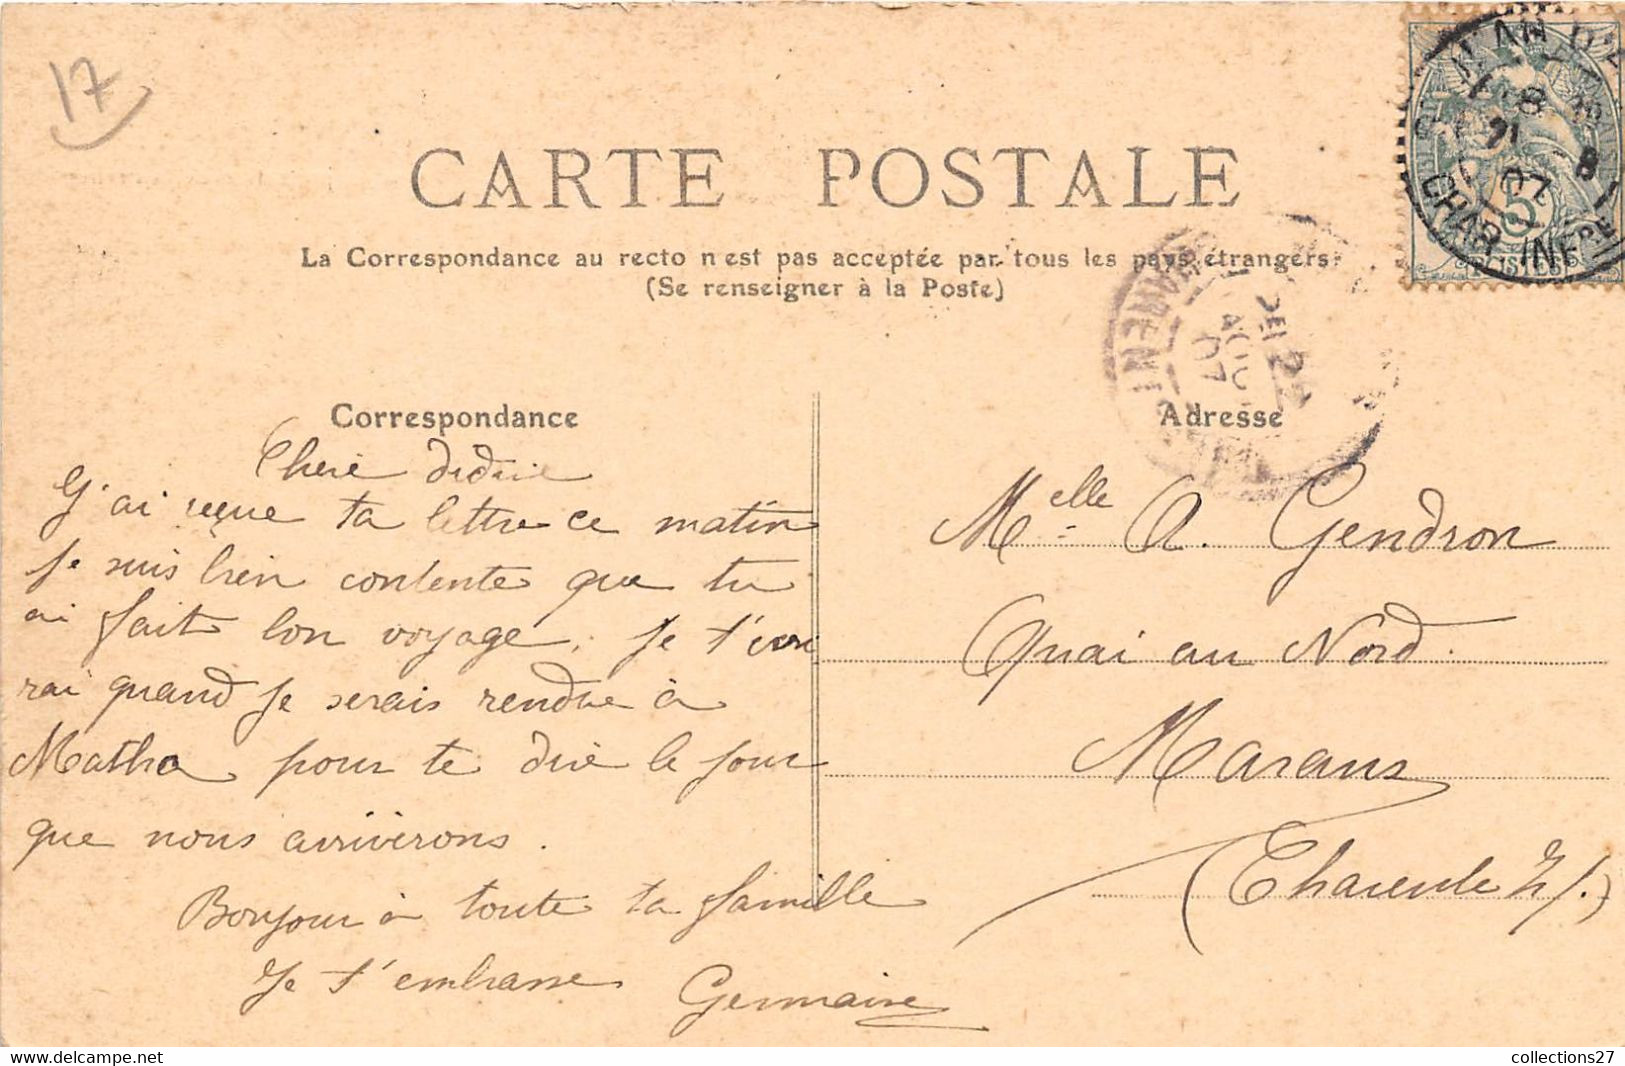 17
CARTE POSTALE
La Correspondance au recto n'est pas acceptée par tous les pays étrangers
(Se renseigner à la Poste)
5
POSTES
CHAR. INFRE
2E
AOU
07
Correspondance
Adresse
Chérie
J'ai reçue ta lettre ce matin
je suis bien contente que tu
ai fait bon voyage. Je t'écri
rai quand je serais rendue à
Matha pour te dire le jour
que nous arriverons.
Bonjour à toute ta famille
Je t'embrasse Germaine
Melle A. Gendron
Quai au Nord.
Marans
(Charente If.)
collections27